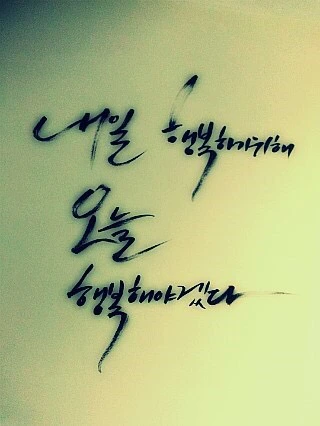 내일 행복하기위해
오늘
행복해야겠다